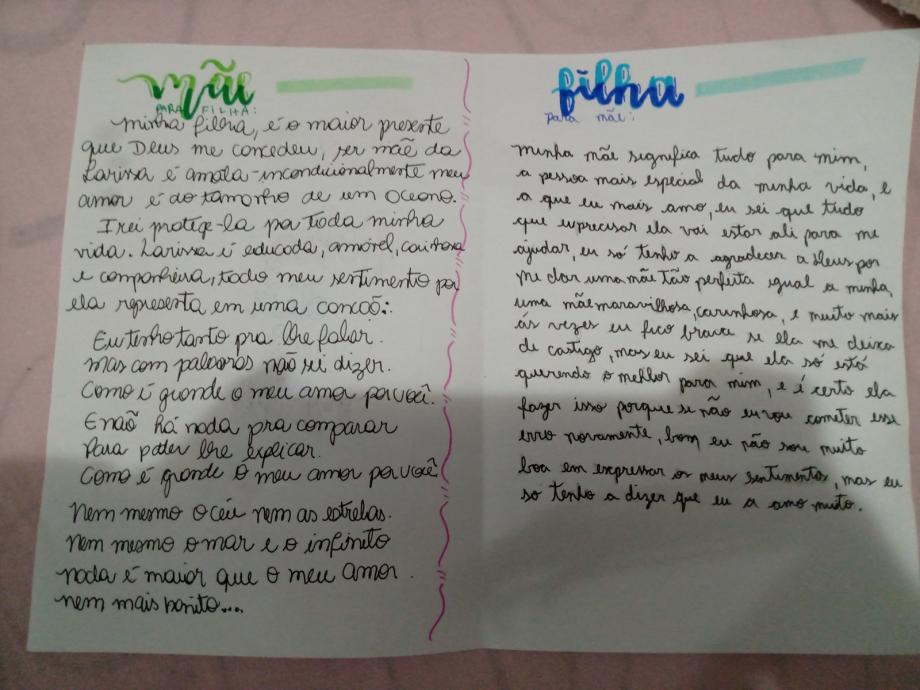 mãe
PARA FILHA:
minha filha, é o maior presente
que Deus me concedeu, ser mãe da
Larissa é amala-incondicionalmente meu
amor é do tamanho de um oceano.
Irei protege-la por toda minha
vida. Larissa é educada, amável, carinhosa
e companheira, todo meu sentimento por
ela representa em uma cançoõ:
Eu tenho tanto pra lhe falar.
mas com palavras não sei dizer.
Como é grande o meu amor por você.
E não há nada pra comparar
Para poder lhe explicar.
Como é grande o meu amor por você
Nem mesmo o céu nem as estrelas.
nem mesmo o mar e o infinito
nada é maior que o meu amor.
nem mais bonito...
filha
para mãe:
minha mãe significa tudo para mim,
a pessoa mais especial da minha vida, e
a que eu mais amo, eu sei que tudo
que eu precisar ela vai estar ali para me
ajudar, eu só tenho a agradecer a Deus por
me dar uma mãe tão perfeita igual a minha,
uma mãe maravilhosa, carinhosa, e muito mais
ás vezes eu fico brava se ela me deixa
de castigo, mas eu sei que ela só está
querendo o melhor para mim, e é certo ela
fazer isso porque se não eu vou cometer esse
erro novamente, bom eu não sou muito
boa em expressar os meus sentimentos, mas eu
so tenho a dizer que eu a amo muito.